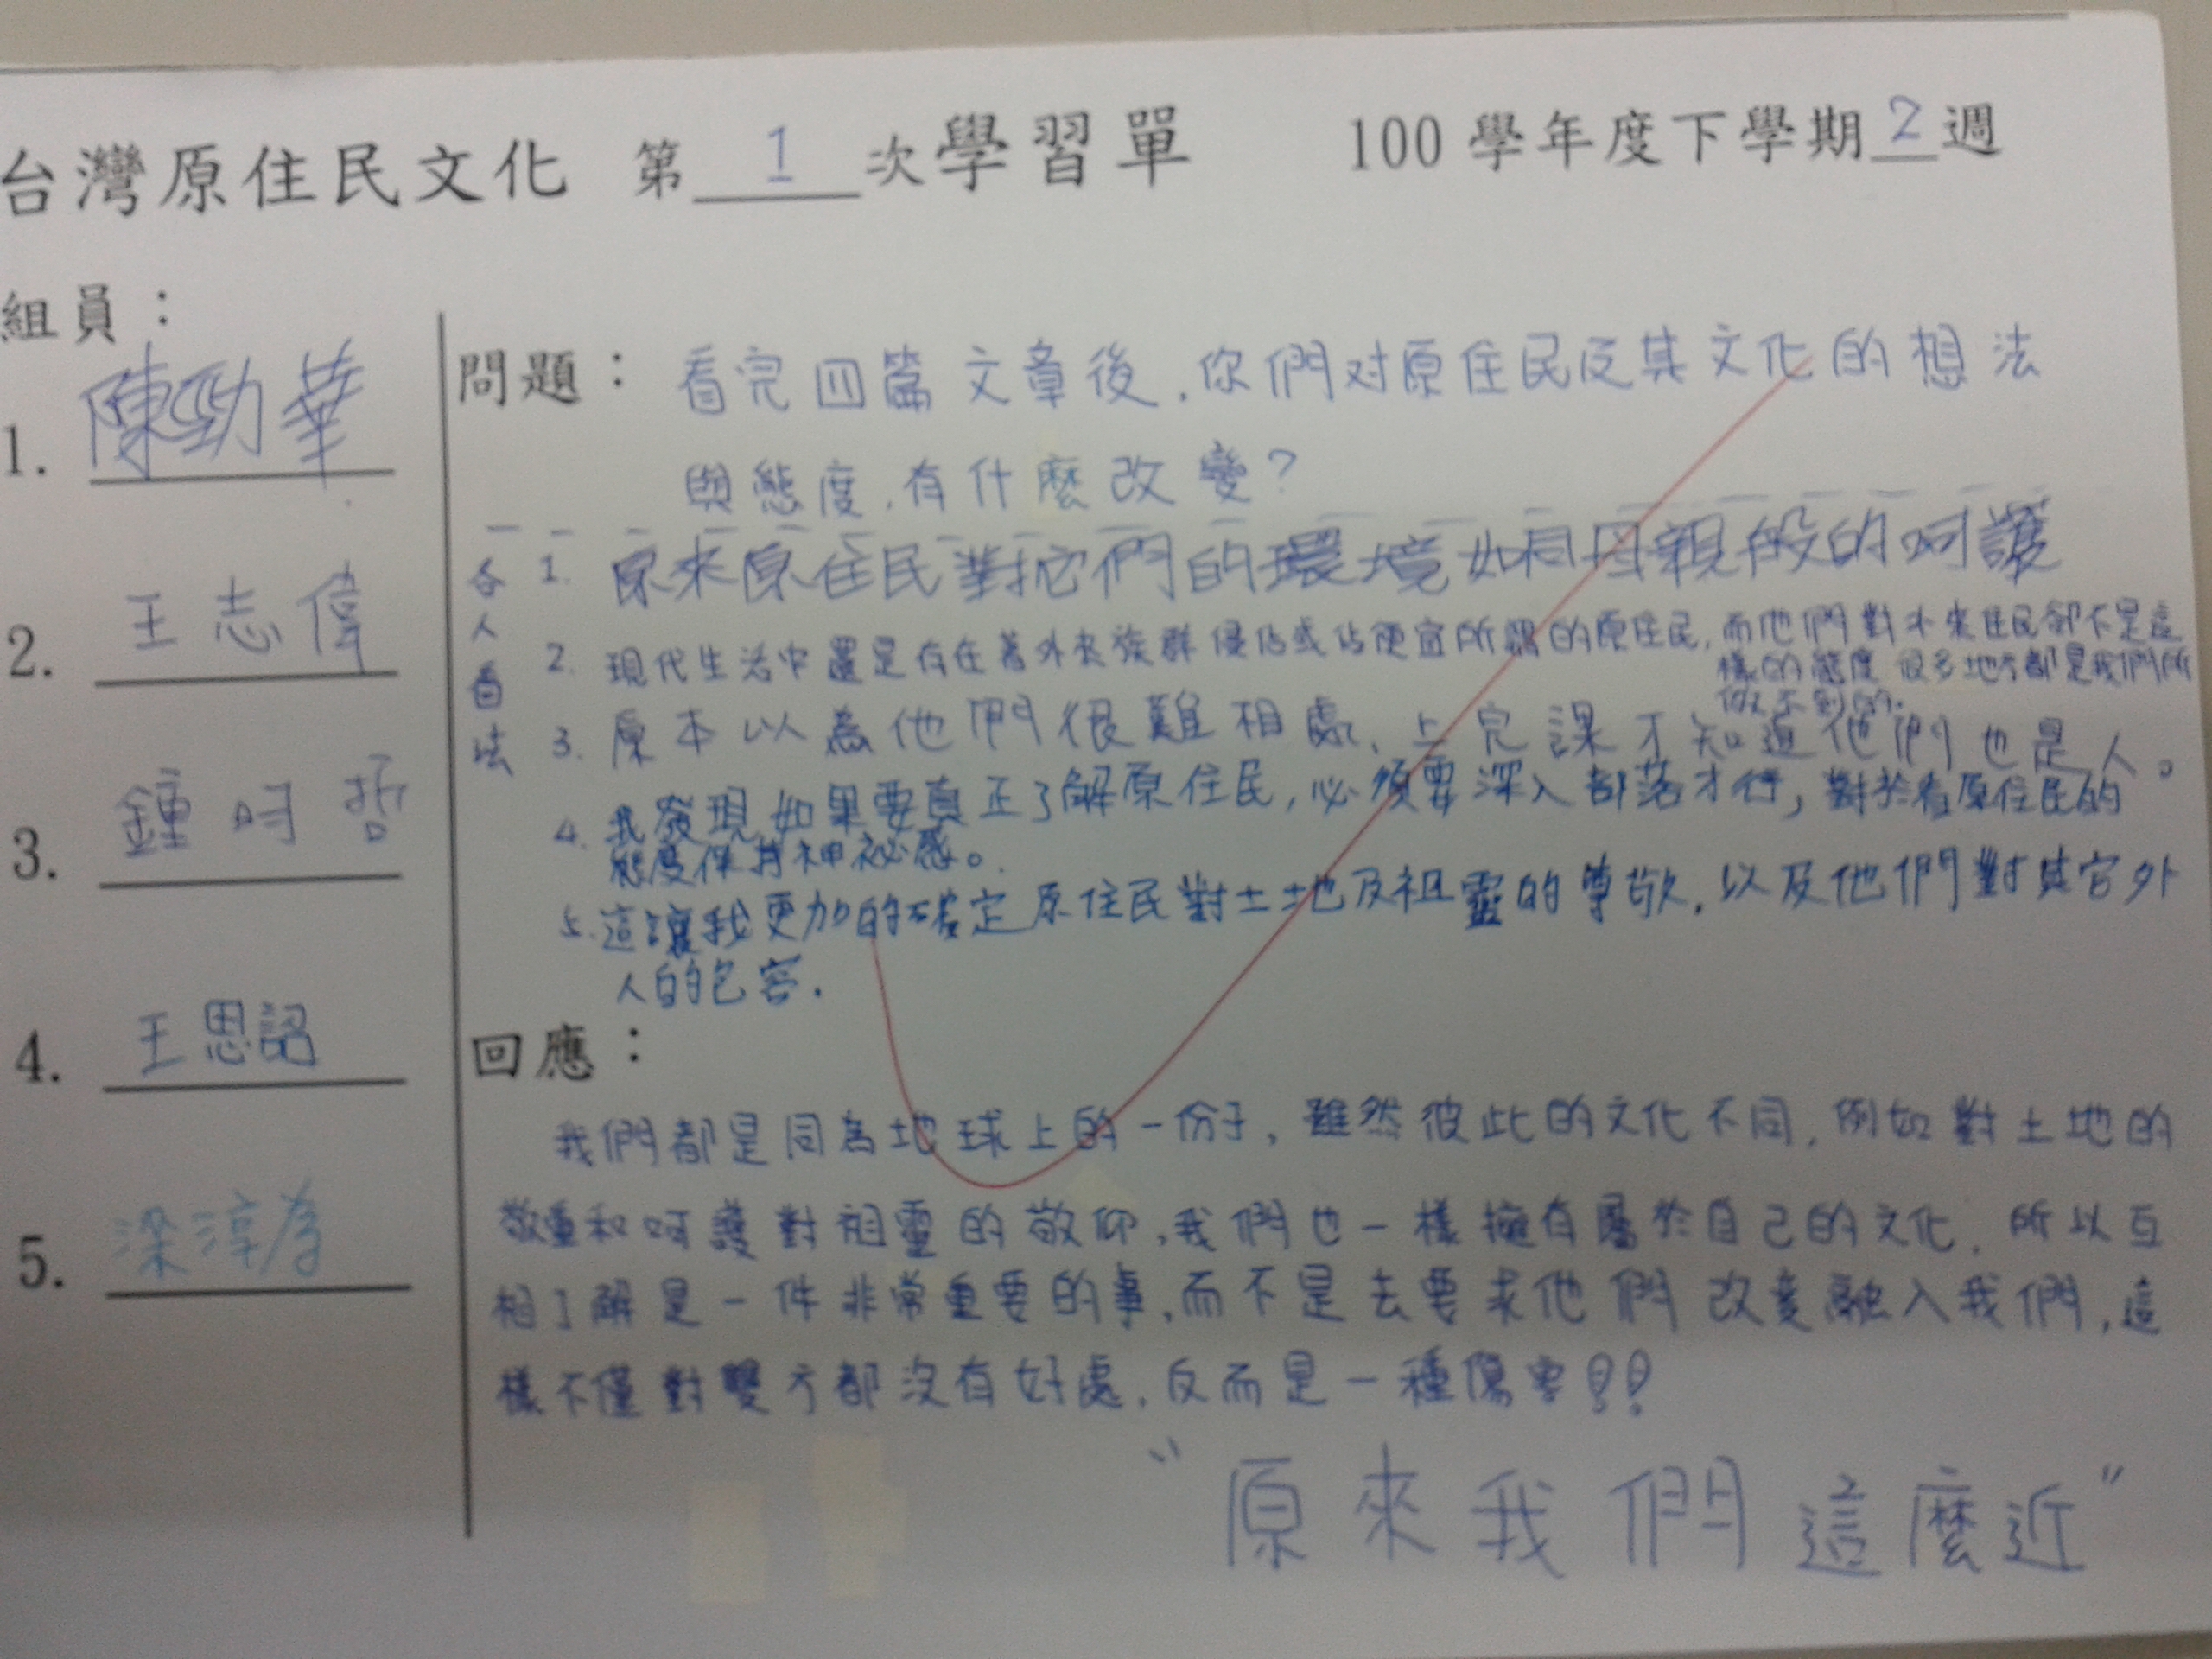 台灣原住民文化 第 1 次學習單 100 學年度下學期 2 週
組員：
1. 陳勁華
2. 王志偉
3. 鍾時哲
4. 王思詔
5. 梁淳為
問題：看完四篇文章後，你們对原住民及其文化的想法
與態度，有什麼改變？
各人看法
1. 原來原住民對它們的環境如同母親般的呵護
2. 現代生活中還是存在著外來族群侵佔或佔便宜所謂的原住民，而他們對外來住民卻不是這
樣的態度 很多地方都是我們所
做不到的.
3. 原本以為他們很難相處、上完課才知道他們也是人。
4. 我發現如果要真正了解原住民，必須要深入部落才行，對於看原住民的
態度保持神祕感。
5. 這讓我更加的確定原住民對土地及祖靈的尊敬，以及他們對其它外
人的包容.
回應：
我們都是同為地球上的一份子，雖然彼此的文化不同，例如對土地的
敬重和呵護對祖靈的敬仰，我們也一樣擁有屬於自己的文化，所以互
相了解是一件非常重要的事，而不是去要求他們改變融入我們，這
樣不僅對雙方都沒有好處，反而是一種傷害!!
"原來我們這麼近"